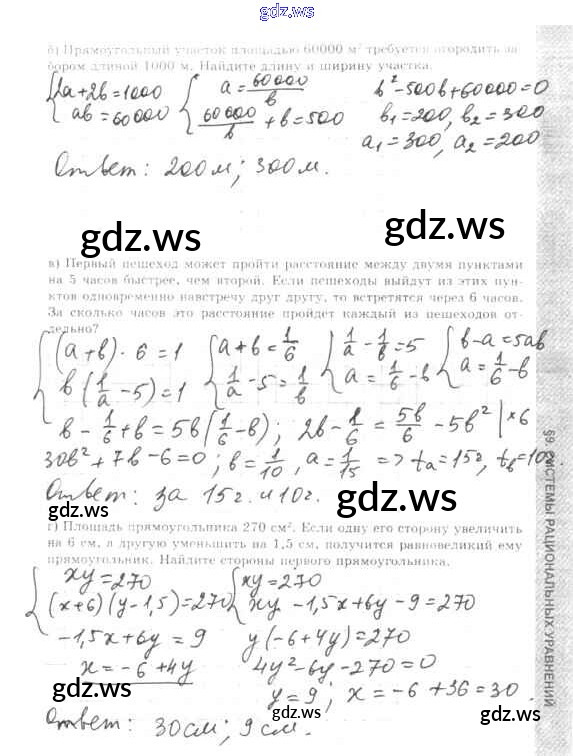 gdz.ws
б) Прямоугольный участок площадью 60000 м² требуется огородить за-
бором длиной 1000 м. Найдите длину и ширину участка.
{2a+2b=1000 {a=60000/b b²-500b+60000=0
ab=60000 60000/b+b=500 b₁=200, b₂=300
a₁=300, a₂=200
Ответ: 200м; 300м.
gdz.ws
gdz.ws
в) Первый пешеход может пройти расстояние между двумя пунктами
на 5 часов быстрее, чем второй. Если пешеходы выйдут из этих пун-
ктов одновременно навстречу друг другу, то встретятся через 6 часов.
За сколько часов это расстояние пройдёт каждый из пешеходов от-
дельно?
{(a+b)·6=1 {a+b=1/6 {1/a-1/b=5 {b-a=5ab
b(1/a-5)=1 1/a-5=1/b a=1/6-b a=1/6-b
b-1/6+b=5b(1/6-b); 2b-1/6=5b/6-5b² |×6
30b²+7b-6=0; b=1/10, a=1/15 => tₐ=15г, t_b=10г.
Ответ: за 15г. и 10г.
gdz.ws
gdz.ws
г) Площадь прямоугольника 270 см². Если одну его сторону увеличить
на 6 см, а другую уменьшить на 1,5 см, получится равновеликий ему
прямоугольник. Найдите стороны первого прямоугольника.
{xy=270 {xy=270
(x+6)(y-1,5)=270 xy-1,5x+6y-9=270
-1,5x+6y=9 y(-6+4y)=270
x=-6+4y 4y²-6y-270=0
y=9; x=-6+36=30.
Ответ: 30см; 9см.
gdz.ws
gdz.ws
gdz.ws
§9. СИСТЕМЫ РАЦИОНАЛЬНЫХ УРАВНЕНИЙ
gdz.ws